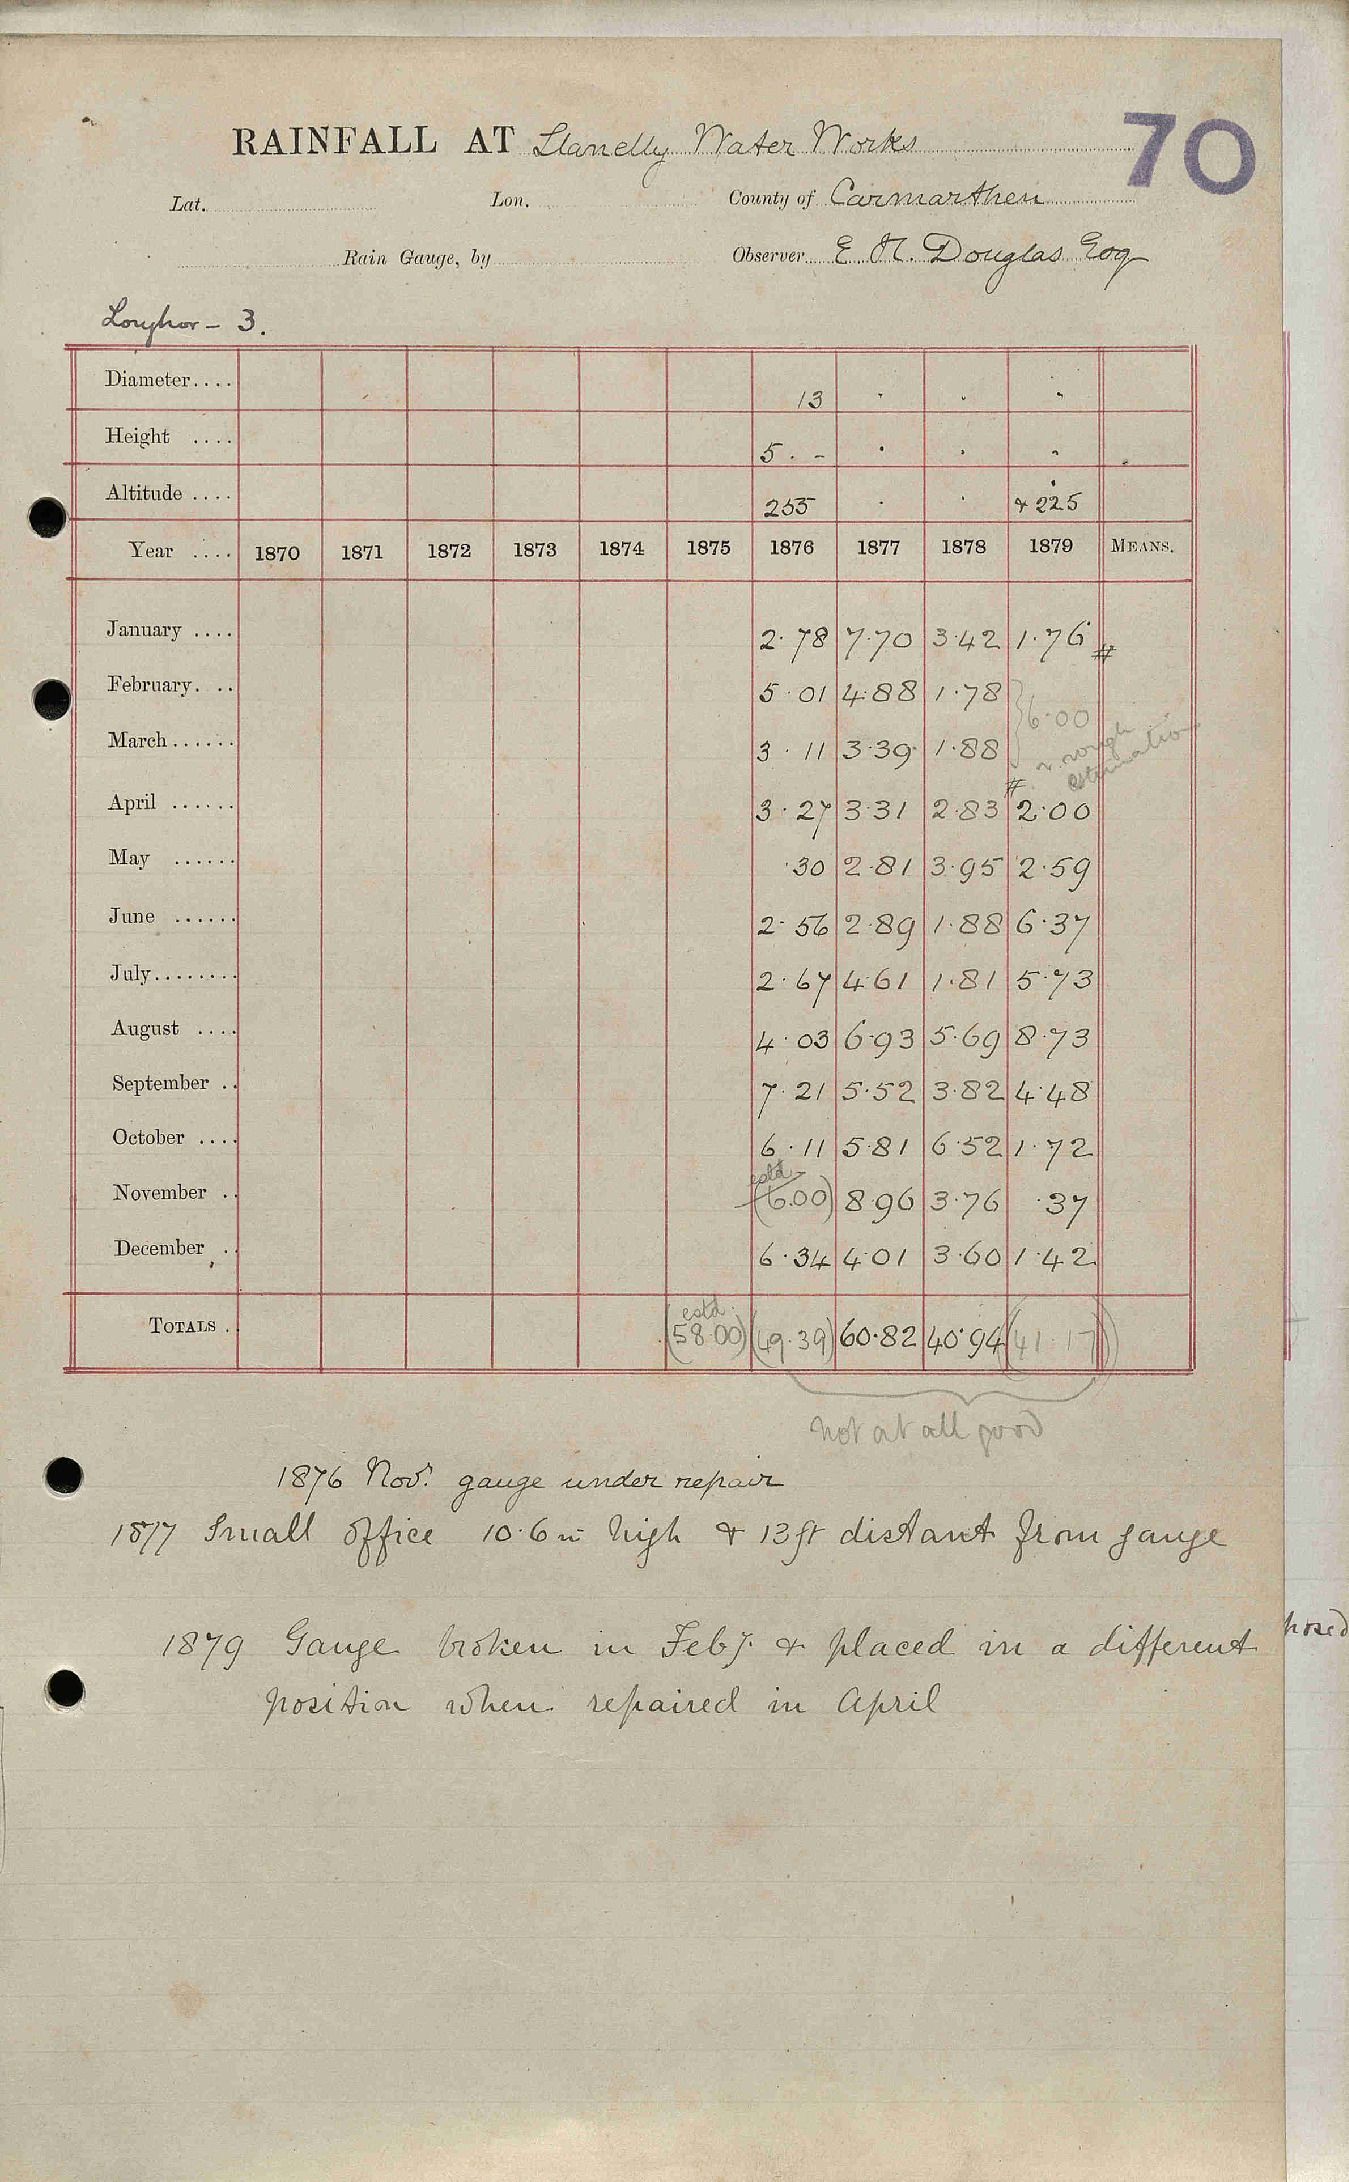 70
RAINFALL AT Llanelly Water Works
Lat. Lon. County of Carmarthen
Rain Gauge, by Observer E. N. Douglas Esq
Loughor - 3.
Diameter.... 13 · · ·
Height .... 5 . - · · ·
Altitude .... 255 · · & 225
Year .... 1870 1871 1872 1873 1874 1875 1876 1877 1878 1879 MEANS.
January .... 2.78 7.70 3.42 1.76 #
February. .. 5.01 4.88 1.78 } 6.00
March...... 3.11 3.39 1.88 rough estimation
April ...... 3.27 3.31 2.83 # 2.00
May ...... .30 2.81 3.95 2.59
June ...... 2.56 2.89 1.88 6.37
July........ 2.67 4.61 1.81 5.73
August .... 4.03 6.93 5.69 8.73
September .. 7.21 5.52 3.82 4.48
October .... 6.11 5.81 6.52 1.72
November .. estd (6.00) 8.96 3.76 .37
December .. 6.34 4.01 3.60 1.42
TOTALS . estd (58.00) (49.39) 60.82 40.94 (41.17)
not at all good
1876 Nov. gauge under repair
1877 Small office 10.6 in high & 13 ft distant from gauge
1879 Gauge broken in Feby. & placed in a different
position when repaired in April